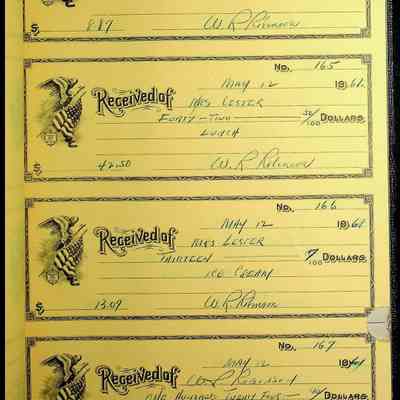 $ 8 17 W. R. Robinson
No. 165
May 12 1961
Received of Mrs Lester
Forty-Two 50/100 Dollars
Lunch
$ 42.50 W. R. Robinson
No. 166
May 12 1961
Received of Mrs Lester
Thirteen 9/100 Dollars
Ice Cream
$ 13.09 W. R. Robinson
No. 167
May 12
Received of W. R. Robinson
One Hundred Twenty Five Dollars